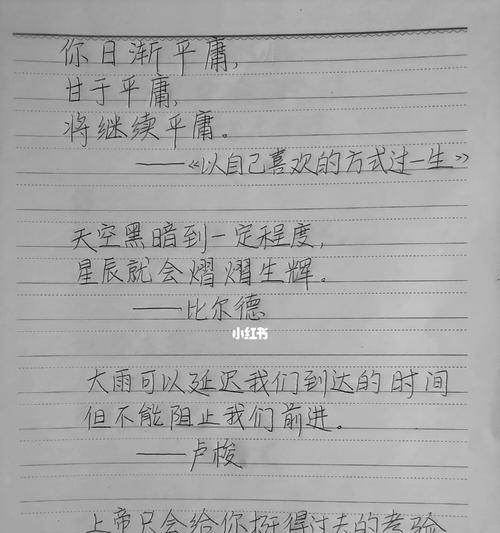 你日渐平庸,
甘于平庸,
将继续平庸。
——《以自己喜欢的方式过一生》
天空黑暗到一定程度,
星辰就会熠熠生辉。
——比尔德
小红书
大雨可以延迟我们到达的时间
但不能阻止我们前进。
——卢梭
上帝只会给你扛得过去的考验